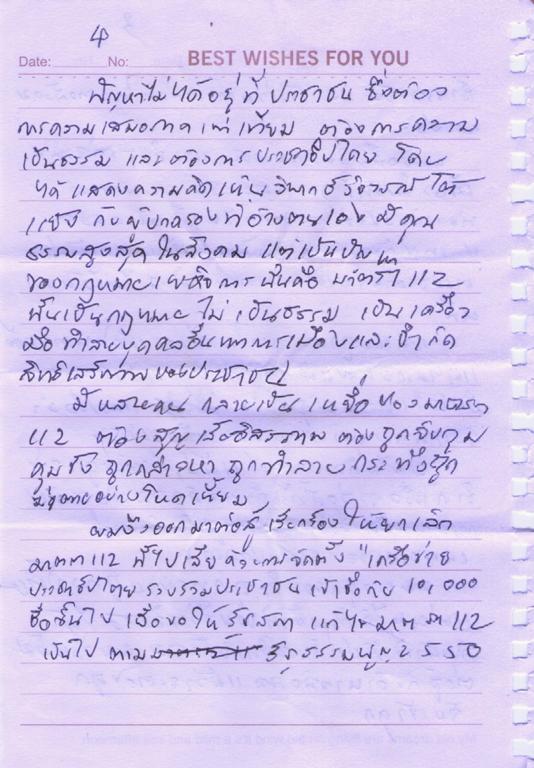 4
Date: No: BEST WISHES FOR YOU
ปัญหาไม่ได้อยู่ที่ ประชาชน ซึ่งต้อง
การความเสมอภาค เท่าเทียม ต้องการความ
เป็นธรรม และต้องการประชาธิปไตย โดย
ได้แสดงความคิดเห็น วิพากษ์วิจารณ์ โต้
แย้ง กับผู้ปกครองที่อ้างตนเอง มีคุณ
ธรรมสูงสุด ในสังคม แต่เป็นปัญหา
ของกฎหมายเผด็จการ นั่นคือ มาตรา 112
นั้นเป็นกฎหมาย ไม่เป็นธรรม เป็นเครื่อง
มือ ทำลายบุคคลอื่นทางการเมืองและจำกัด
สิทธิเสรีภาพของประชาชน
มีหลายคน กลายเป็น เหยื่อ ของมาตรา
112 ต้องสูญเสียอิสรภาพ ต้องถูกจับกุม
คุมขัง ถูกกล่าวหา ถูกทำลาย กระทั่งถูก
ฆ่าตายอย่างโหดเหี้ยม
ผมจึงออกมาต่อสู้ เรียกร้อง ให้ยกเลิก
มาตรา 112 นี้ไปเสีย ด้วยการจัดตั้ง "เครือข่าย
ประชาธิปไตย รวบรวมประชาชน เข้าชื่อกัน 10,000
ชื่อขึ้นไป เสนอขอให้ รัฐสภา แก้ไขมาตรา 112
เป็นไป ตาม รัฐธรรมนูญ 2550